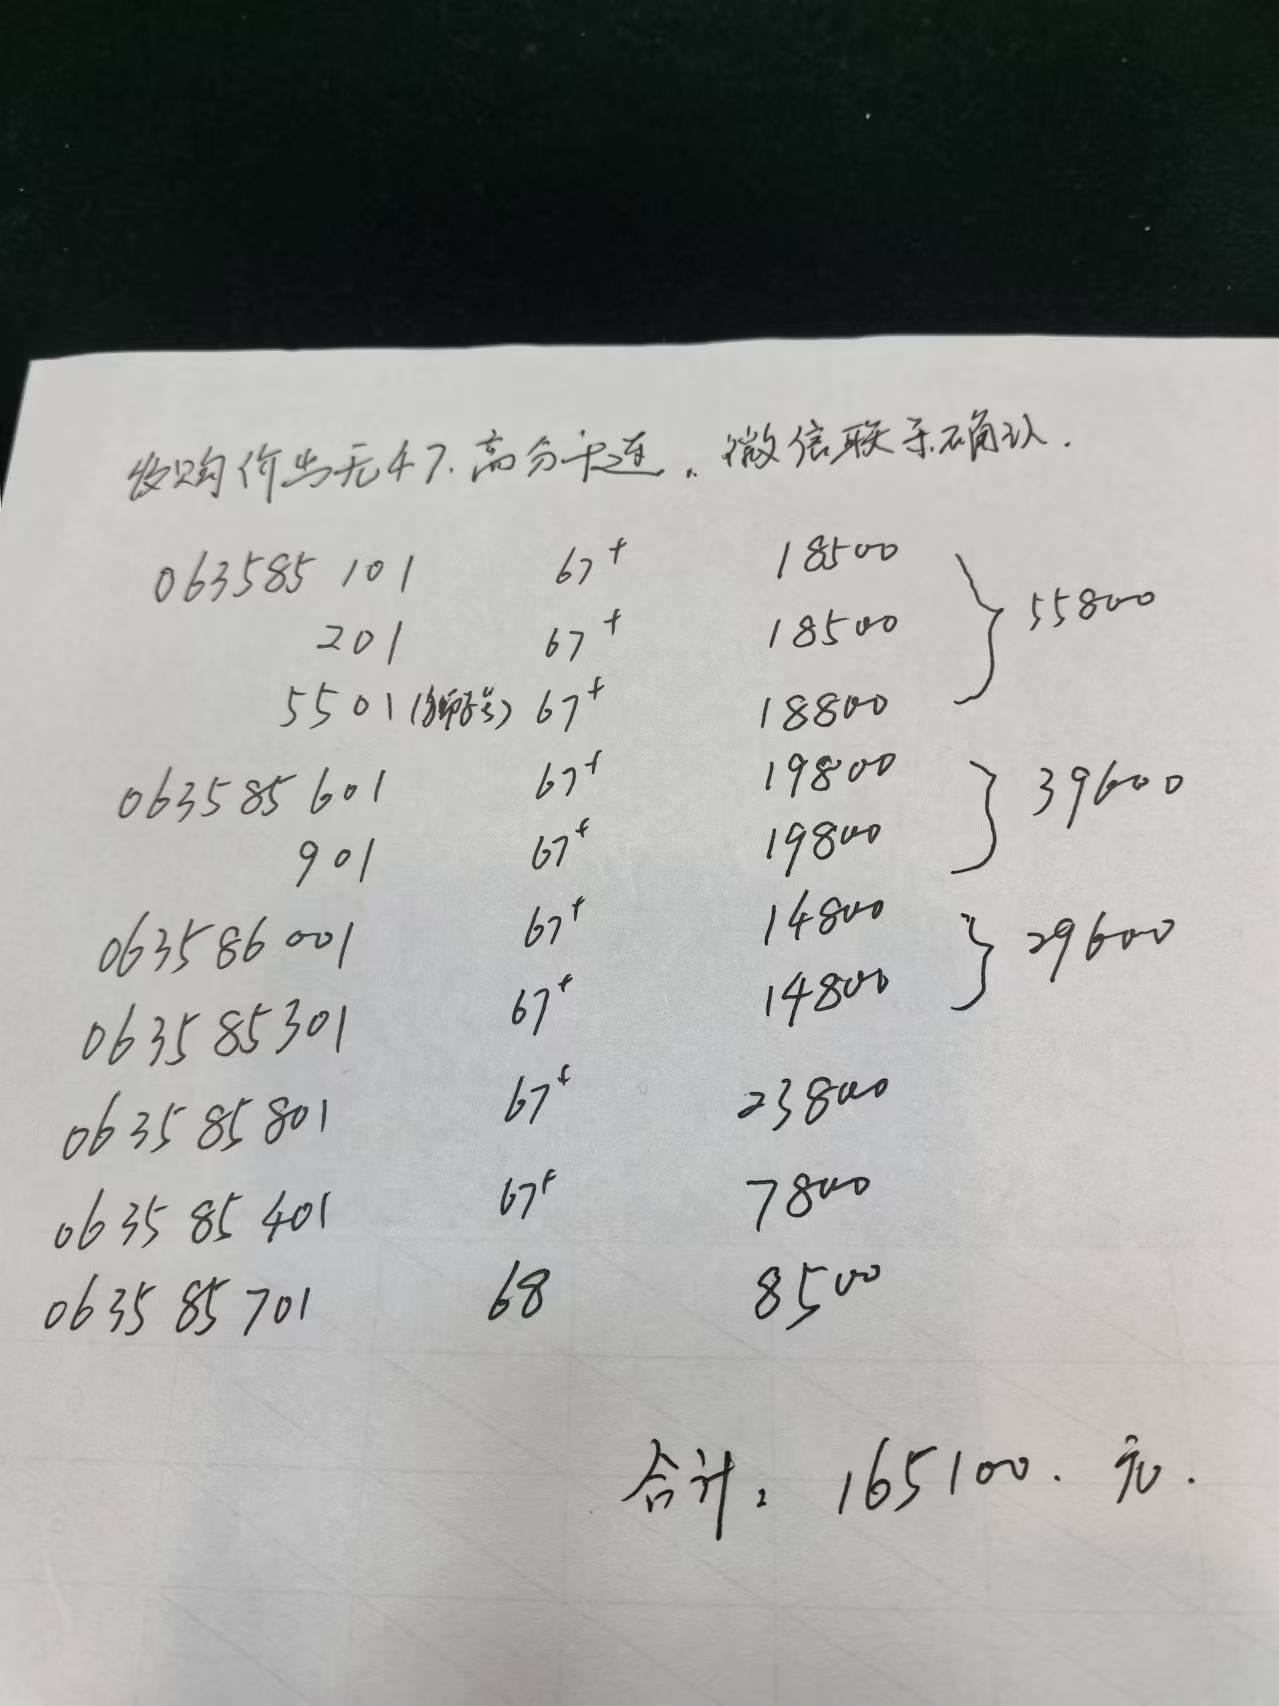 收购价当无47.高分千连.微信联系确认.
063585 101 67+ 18500
201 67+ 18500 55800
5501 67+ 18800
063585 601 67+ 19800
901 67+ 19800 39600
063586001 67+ 14800
063585301 67+ 14800 29600
063585801 67+ 23800
063585401 67+ 7800
063585701 68 8500
合计: 165100. 元.